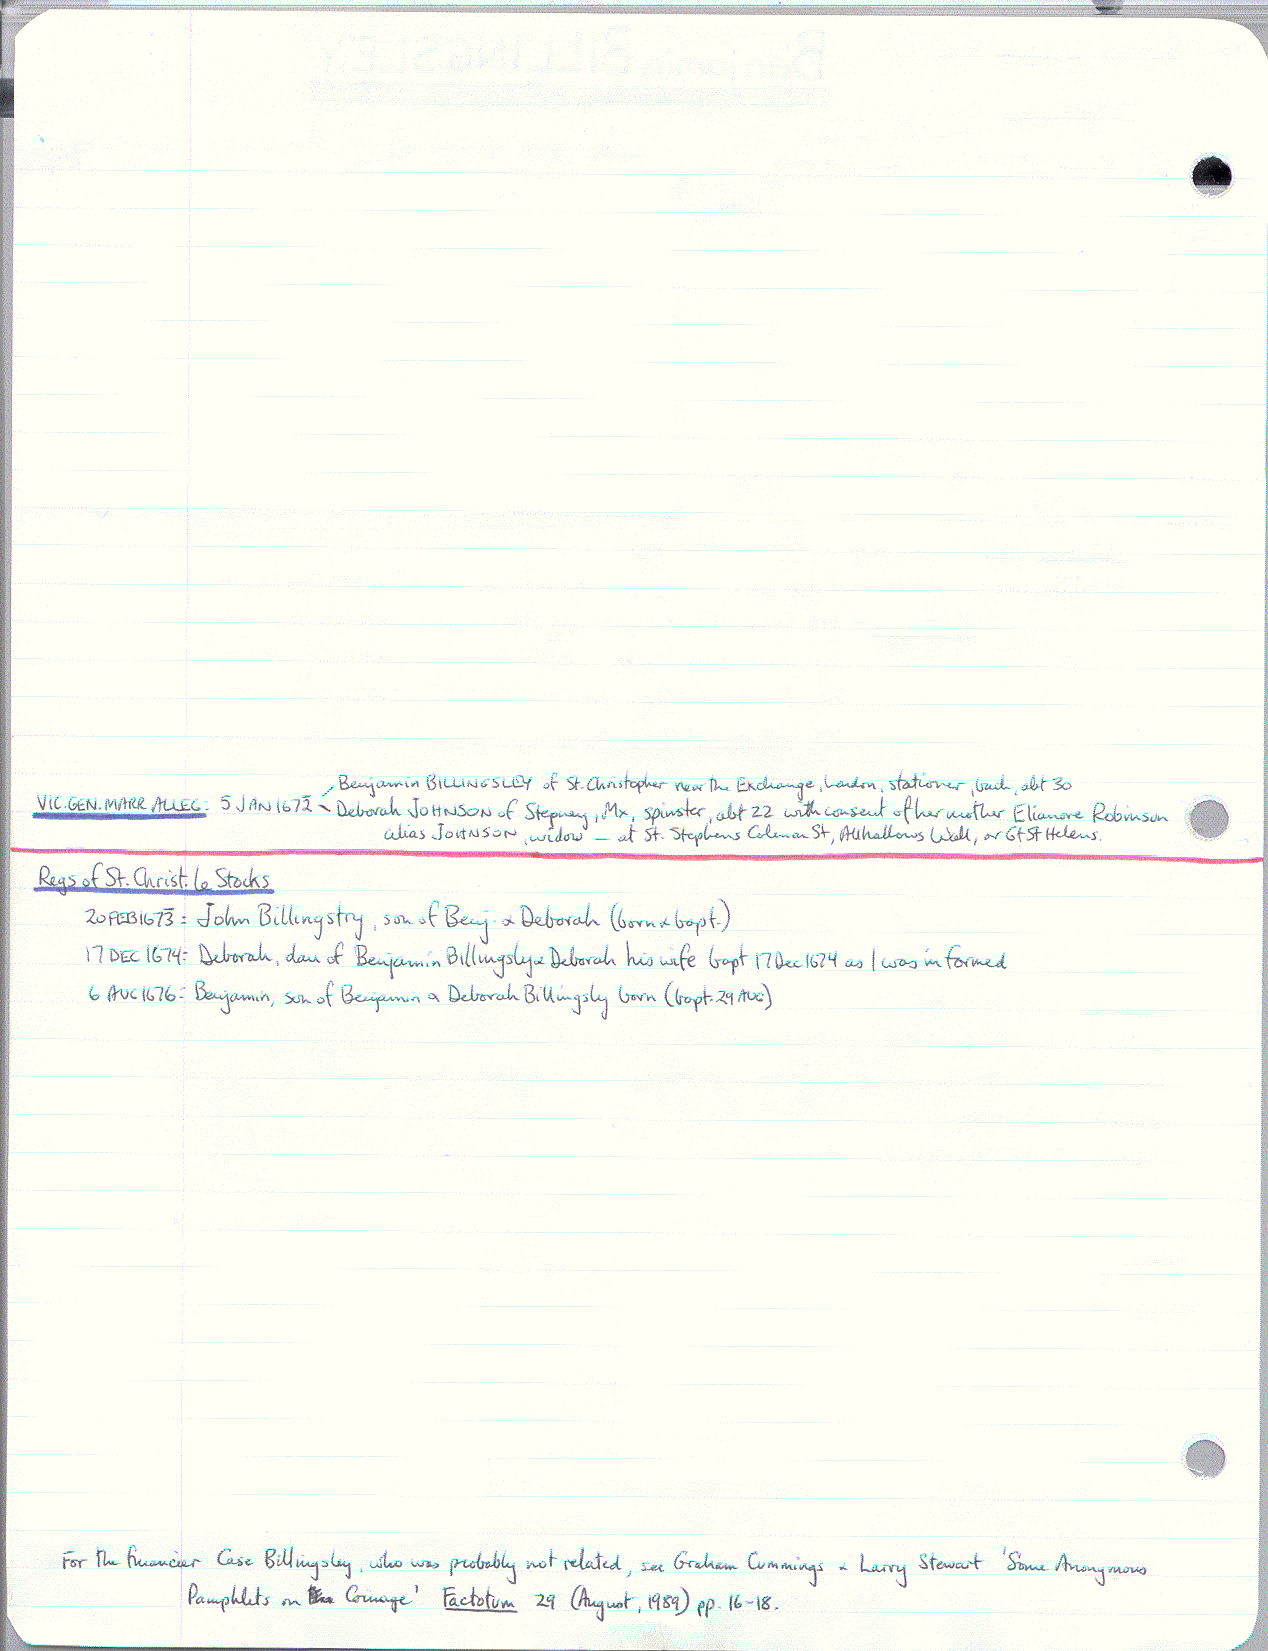 Benjamin BILLINGSLEY
Benjamin BILLINGSLEY of St. Christopher near the Exchange, London, stationer, bach, abt 30
VIC. GEN. MARR ALLEG: 5 JAN 1672 Deborah JOHNSON of Stepney, Mx, spinster, abt 22 with consent of her mother Elianore Robinson
alias JOHNSON, widow – at St. Stephens Coleman St, Allhallows Wall, or Gt St Helens.
Regs of St. Christ. le Stocks
20 FEB 1673: John Billingstry, son of Benj. & Deborah (born & bapt.)
17 DEC 1674: Deborah, dau of Benjamin Billingsly & Deborah his wife bapt 17 Dec 1674 as I was informed
6 AUG 1676: Benjamin, son of Benjamin & Deborah Billingsly born (bapt. 29 AUG)
For the financier Case Billingsley, who was probably not related, see Graham Cummings & Larry Stewart 'Some Anonymous
Pamphlets on Coinage' Factotum 29 (August, 1989) pp. 16-18.